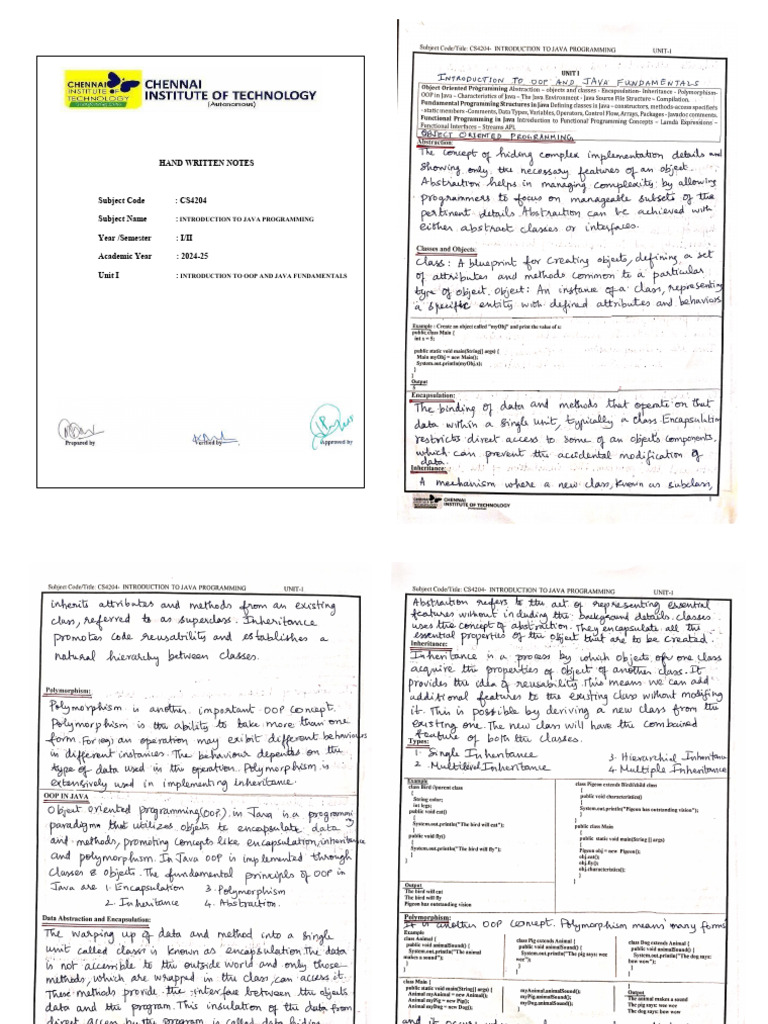 CHENNAI
INSTITUTE OF
TECHNOLOGY
CHENNAI
INSTITUTE OF TECHNOLOGY
(Autonomous)
HAND WRITTEN NOTES
Subject Code : CS4204
Subject Name : INTRODUCTION TO JAVA PROGRAMMING
Year /Semester : I/II
Academic Year : 2024-25
Unit I : INTRODUCTION TO OOP AND JAVA FUNDAMENTALS
Prepared by Verified by Approved by
Subject Code/Title: CS4204- INTRODUCTION TO JAVA PROGRAMMING UNIT-I
UNIT I
INTRODUCTION TO OOP AND JAVA FUNDAMENTALS
Object Oriented Programming Abstraction – objects and classes - Encapsulation- Inheritance - Polymorphism-
OOP in Java – Characteristics of Java – The Java Environment - Java Source File Structure – Compilation,
Fundamental Programming Structures in Java Defining classes in Java – constructors, methods-access specifiers
- static members -Comments, Data Types, Variables, Operators, Control Flow, Arrays, Packages - Javadoc comments.
Functional Programming in Java Introduction to Functional Programming Concepts – Lamda Expressions –
Functional Interfaces – Streams API.
OBJECT ORIENTED PROGRAMMING
Abstraction:
The concept of hiding complex implementation details and
showing only the necessary features of an object.
Abstraction helps in managing complexity by allowing
programmers to focus on manageable subsets of the
pertinent details. Abstraction can be achieved with
either abstract classes or interfaces.
Classes and Objects:
Class: A blueprint for creating objects, defining a set
of attributes and methods common to a particular
type of object. Object: An instance of a class, representing
a specific entity with defined attributes and behaviors
Example : Create an object called "myObj" and print the value of x:
public class Main {
int x = 5;
public static void main(String[] args) {
Main myObj = new Main();
System.out.println(myObj.x);
}
}
Output
5
Encapsulation:
The binding of data and methods that operate on that
data within a single unit, typically a class. Encapsulation
restricts direct access to some of an objects components,
which can prevent the accidental modification of
data.
Inheritance:
A mechanism where a new class, known as subclass,
CHENNAI
INSTITUTE OF TECHNOLOGY
Subject Code/Title: CS4204- INTRODUCTION TO JAVA PROGRAMMING UNIT-I
inherits attributes and methods from an existing
class, referred to as superclass. Inheritance
promotes code reusability and establishes a
natural hierarchy between classes.
Polymorphism:
Polymorphism is another important OOP concept.
Polymorphism is the ability to take more than one
form. For(eg) an operation may exhibit different behaviours
in different instances. The behaviour depends on the
type of data used in the operation. Polymorphism is
extensively used in implementing Inheritance.
OOP IN JAVA
Object oriented programming(OOP) in Java is a programming
paradigm that utilizes objects to encapsulate data
and methods, promoting concepts like encapsulation, inheritance
and polymorphism. In Java OOP is implemented through
Classes & Objects. The fundamental principles of OOP in
Java are 1. Encapsulation 3. Polymorphism
2. Inheritance 4. Abstraction.
Data Abstraction and Encapsulation:
The warping up of data and method into a single
unit called class is known as encapsulation. The data
is not accessible to the outside world and only those
methods, which are wrapped in the class, can access it.
These methods provide the interface between the objects
data and the program. This insulation of the data from
direct access by the program is called data hiding.
Subject Code/Title: CS4204- INTRODUCTION TO JAVA PROGRAMMING UNIT-I
Abstraction refers to the act of representing essential
features without including the background details. Classes
uses the concept of abstraction. They encapsulate all the
essential properties of the object that are to be created.
Inheritance:
Inheritance is a process by which objects of one class
acquire the properties of object of another class. It
provides the idea of reusability. This means we can add
additional features to the existing class without modifing
it. This is possible by deriving a new class from the
existing one. The new class will have the combined
feature of both the classes.
Types:
1. Single Inheritance 3. Hierarchial Inheritance
2. Multilevel Inheritance 4. Multiple Inheritance
Example
class Bird //parent class
{
String color;
int legs;
public void eat()
{
System.out.println("The bird will eat");
}
public void fly()
{
System.out.println("The bird will fly");
}
}
class Pigeon extends Bird//child class
{
public void characteristics()
{
System.out.println("Pigeon has outstanding vision");
}}
class Main
{
public static void main(String [] args)
{
Pigeon obj = new Pigeon();
obj.eat();
obj.fly();
obj.characteristics();
}
}
Output
The bird will eat
The bird will fly
Pigeon has outstanding vision
Polymorphism:
It is another OOP concept. Polymorphism means many forms
Example
class Animal {
public void animalSound() {
System.out.println("The animal
makes a sound");
}
}
class Pig extends Animal {
public void animalSound() {
System.out.println("The pig says: wee
wee");
}
}
class Dog extends Animal {
public void animalSound() {
System.out.println("The dog says:
bow wow");
}
}
class Main {
public static void main(String[] args) {
Animal myAnimal = new Animal();
Animal myPig = new Pig();
Animal myDog = new Dog();
myAnimal.animalSound();
myPig.animalSound();
myDog.animalSound();
}
}
Output
The animal makes a sound
The pig says: wee wee
The dog says: bow wow
and it occurs